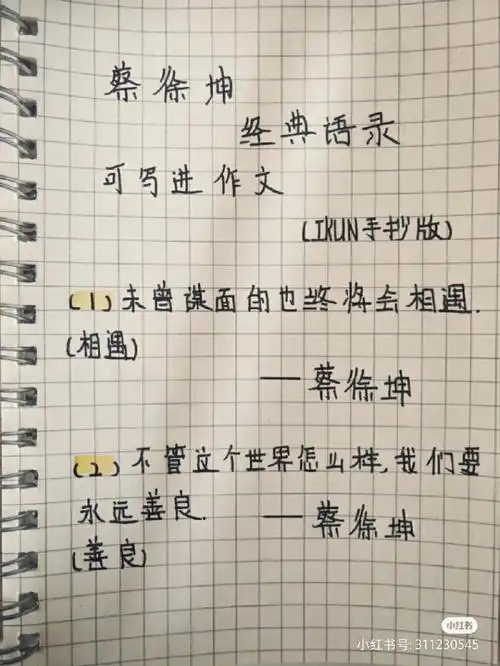 蔡徐坤
经典语录
可写进作文
(IKUN手抄版)
(1)未曾谋面的也终将会相遇.
(相遇)
——蔡徐坤
(2)不管这个世界怎么样,我们要
永远善良. ——蔡徐坤
(善良)
小红书
小红书号: 311230545